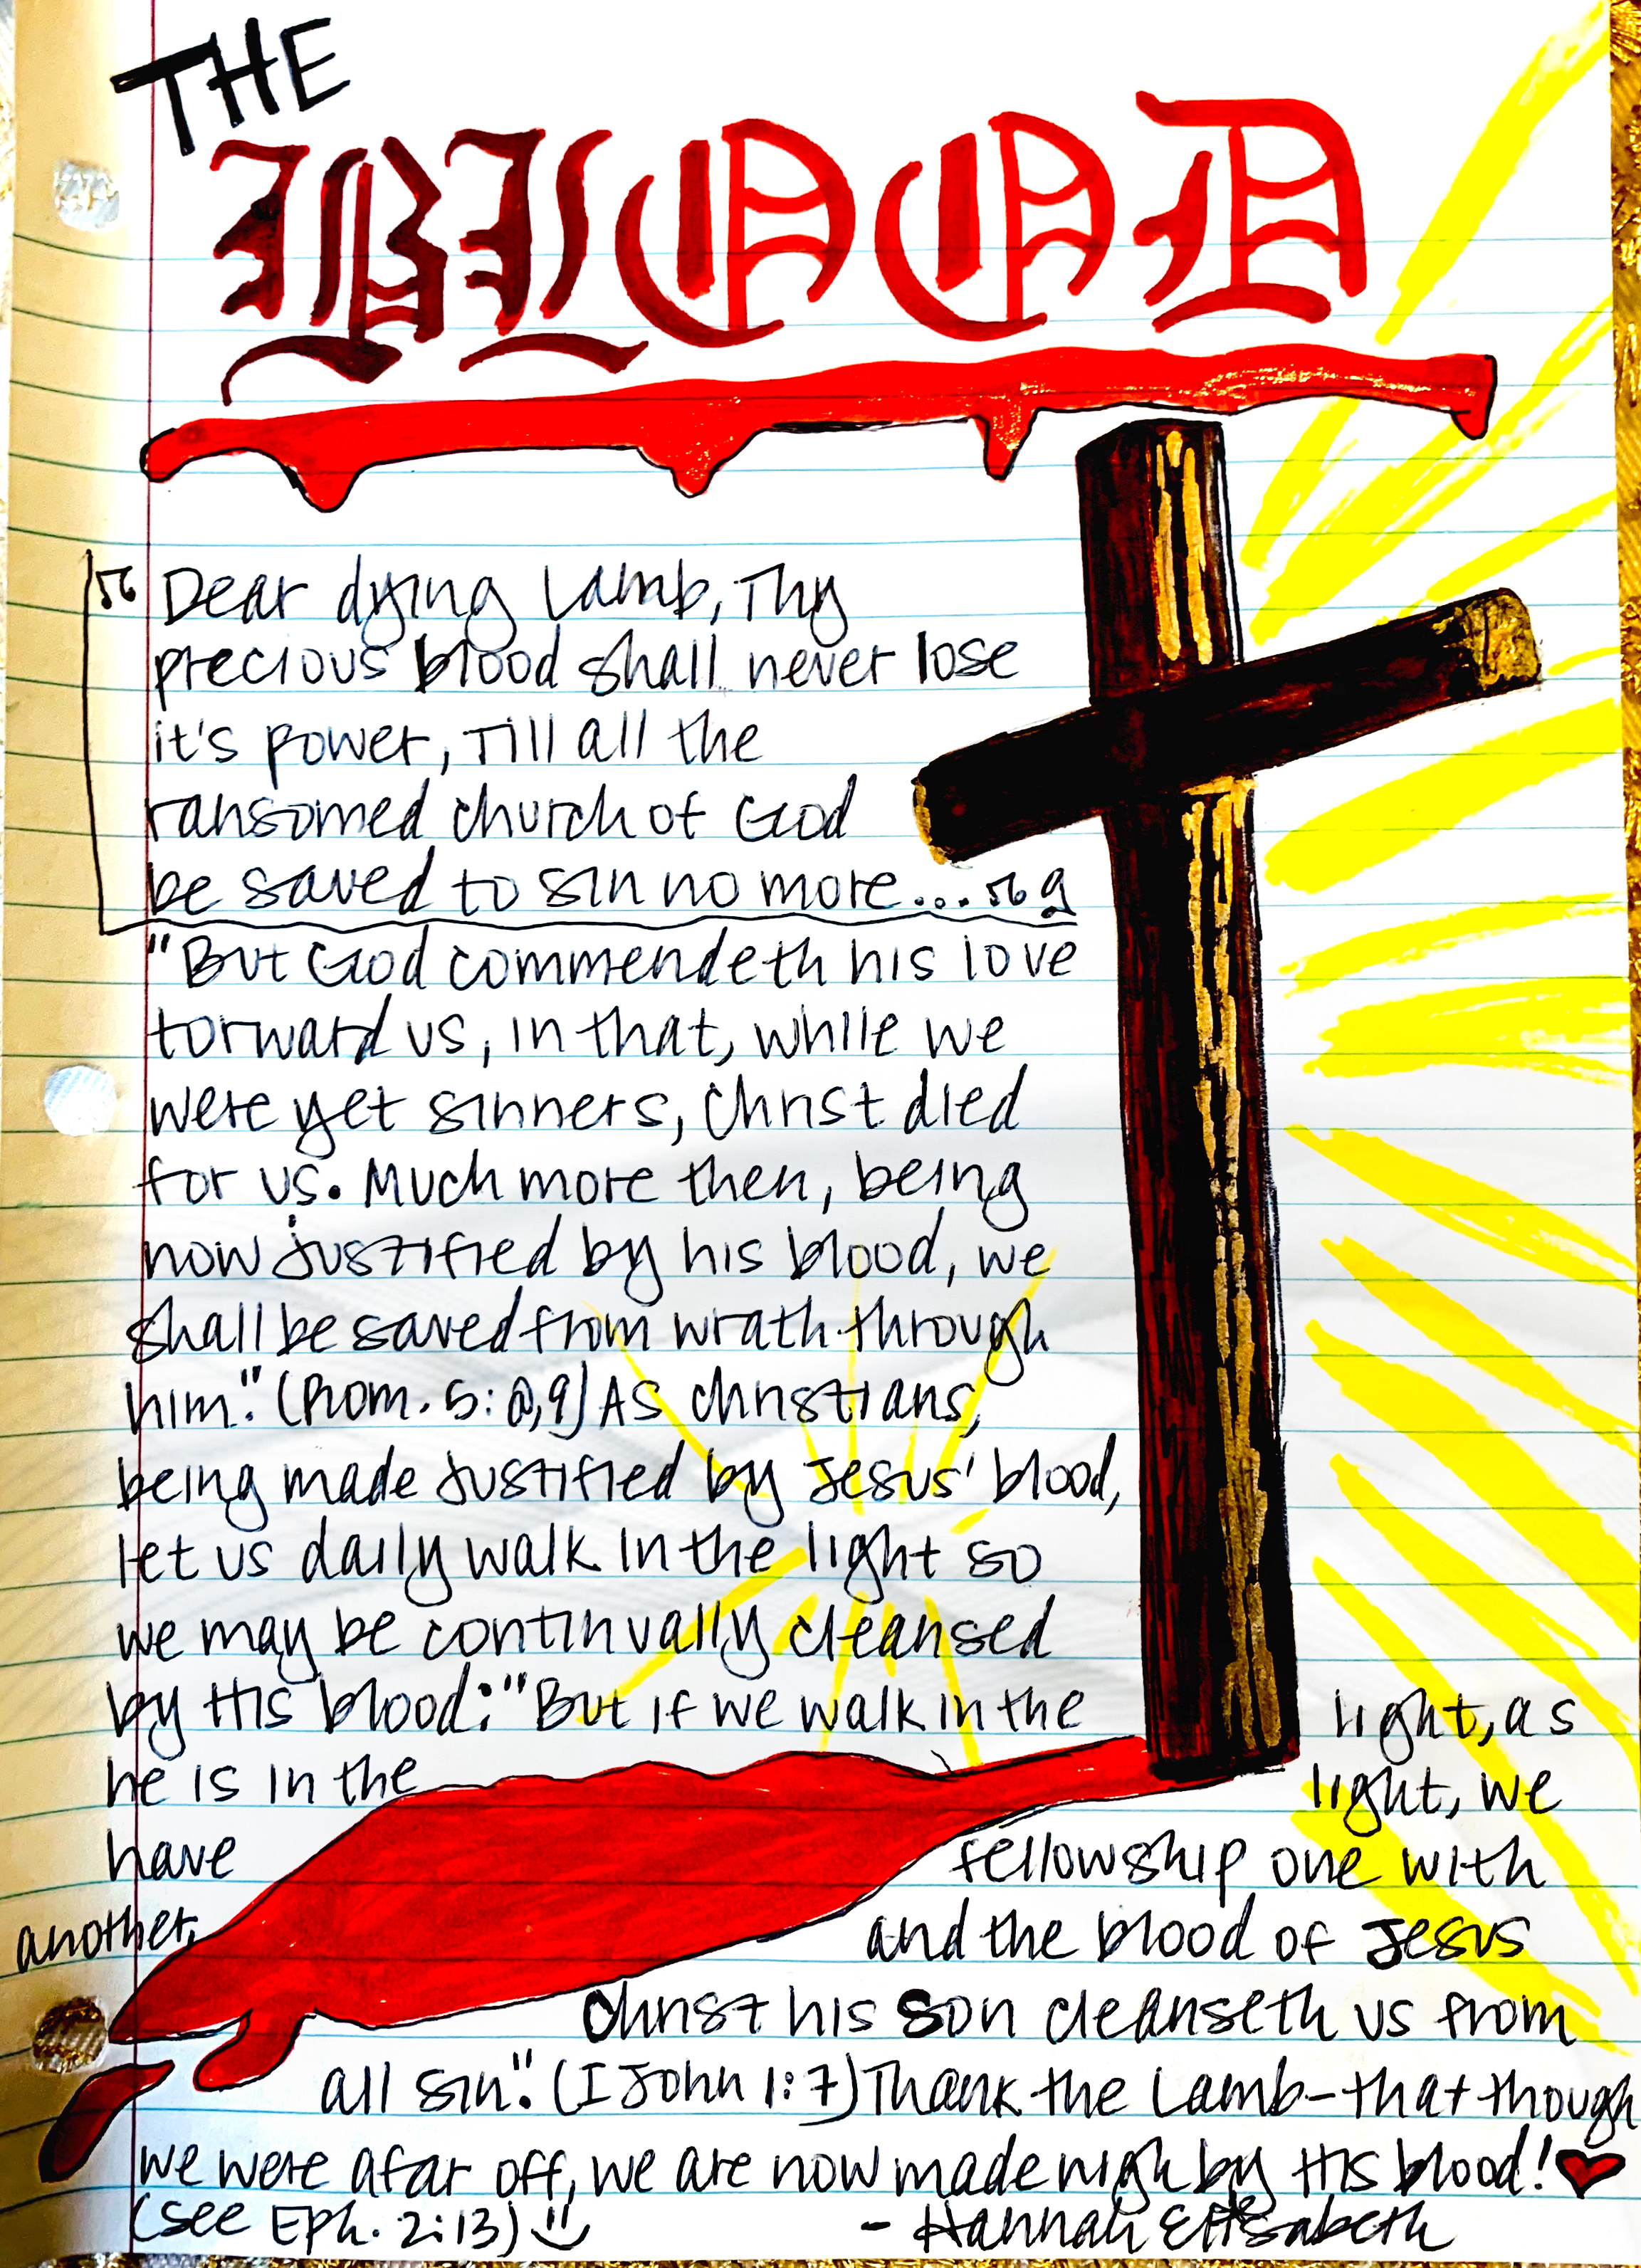 THE
BLOOD
Dear dying Lamb, Thy
precious blood shall never lose
it's power, Till all the
ransomed church of God
be saved to sin no more...
"But God commendeth his love
torward us, in that, while we
were yet sinners, Christ died
for us. Much more then, being
now justified by his blood, we
shall be saved from wrath through
him." (Rom. 5: 8,9) As Christians,
being made justified by Jesus' blood,
let us daily walk in the light so
we may be continually cleansed
by His blood: "But if we walk in the light, as
he is in the light, we
have fellowship one with
another, and the blood of Jesus
Christ his Son cleanseth us from
all sin." (I John 1:7) Thank the Lamb-that though
we were afar off, we are now made nigh by His blood!
(see Eph. 2:13) - Hannah Elisabeth